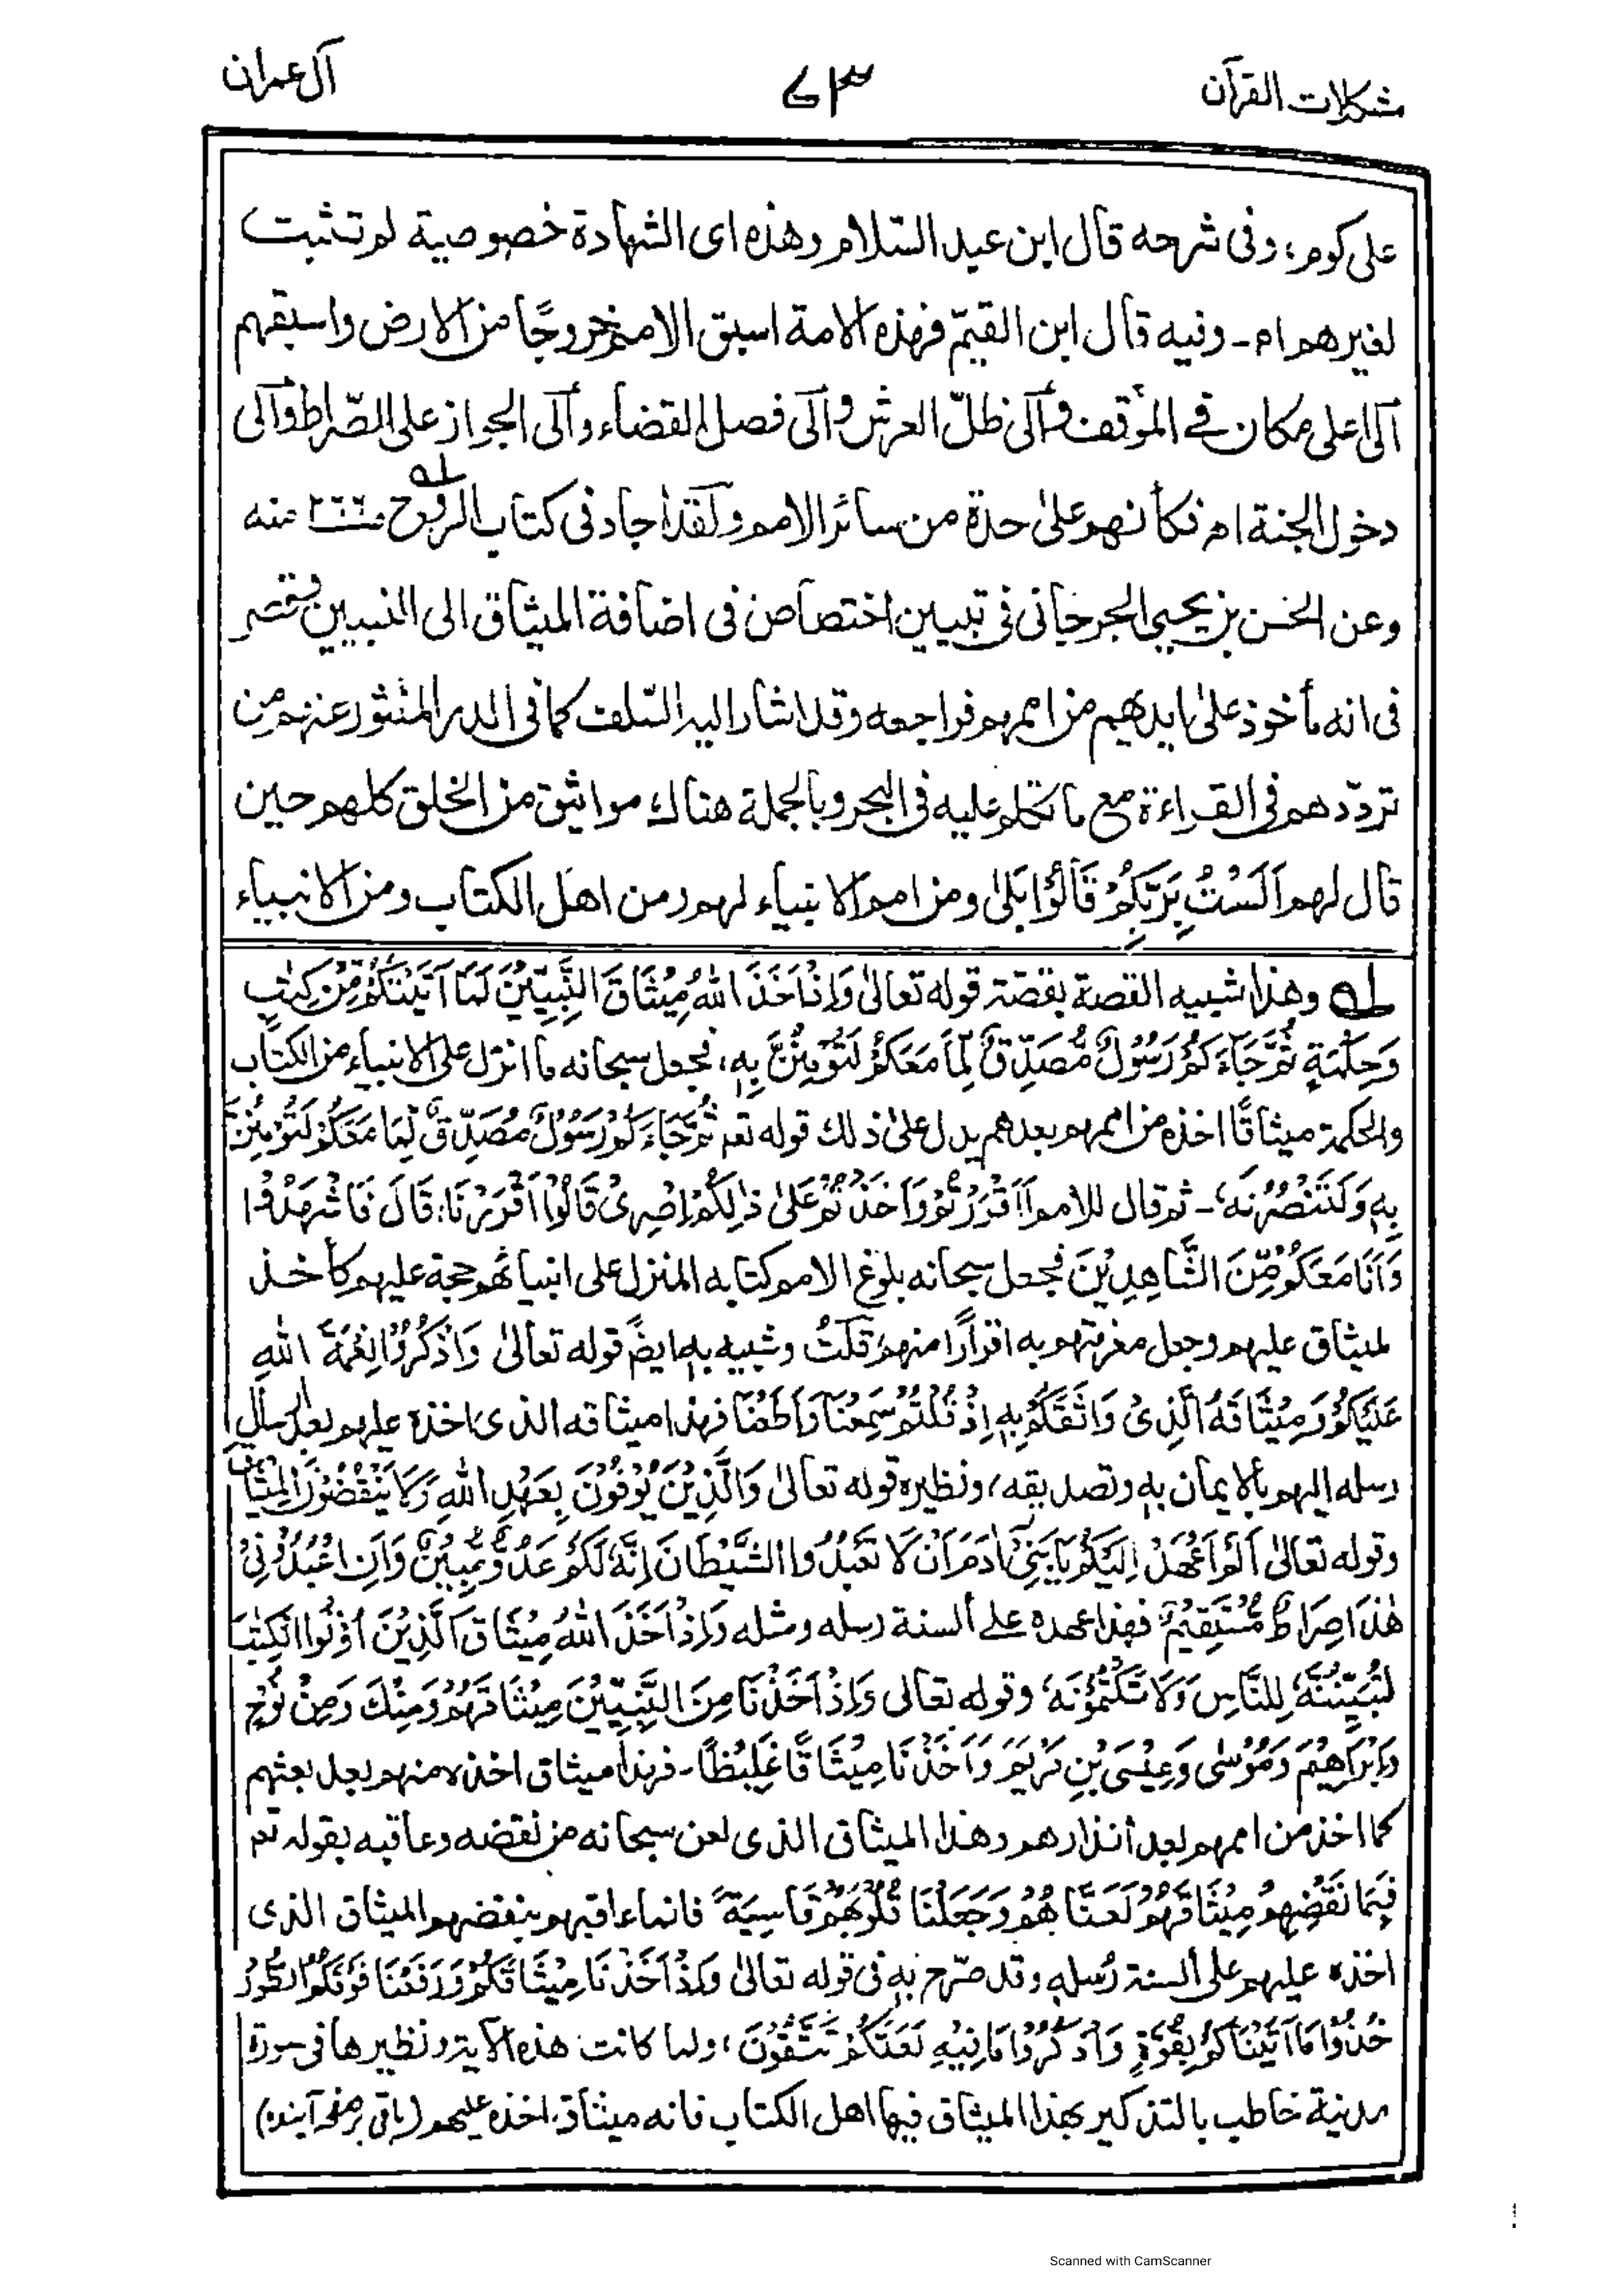 مشكلات القرآن
٧٣
آل عمران
على كوم، وفى شرحه قال ابن عبد السّلام وهذه اى الشهادة خصوصية لم تثبت
لغيرهم اه۔ وفيه قال ابن القيّم فهذه الامة اسبق الامم خروجًا من الارض واسبقهم
الى اعلى مكان في الموقف والى ظلّ العرش والى فصل القضاء والى الجواز على الصّراط والى
دخول الجنة اه فكأنهم على حدة من سائر الامم ولقد اجاد فى كتاب الروح منه
له
وعن الحسن بن يحيى الجرجانى فى تبيين اختصاص فى اضافة الميثاق الى النبيين
فى انه مأخوذ على ايديهم من اممهم فراجعه وقد اشار اليه السّلف كما فى الدر المنثور عنهم من
تردّدهم فى القراءة مع ما تكلم عليه فى البحر وبالجملة هناك مواثيق من الخلق كلهم حين
قال لهم اَلَسْتُ بِرَبِّكُمْ قَالُوْا بَلىٰ ومن امم الانبياء لهم ومن اهل الكتاب ومن الانبياء
له وهذا شبيه القصة بقصّة قوله تعالىٰ وَاِذْ اَخَذَ اللهُ مِيْثَاقَ النَّبِيِّيْنَ لَمَا آتَيْتُكُمْ مِّنْ كِتٰبٍ
وَحِكْمَةٍ ثُمَّ جَاءَكُمْ رَسُوْلٌ مُّصَدِّقٌ لِّمَا مَعَكُمْ لَتُؤْمِنُنَّ بِهٖ، فجعل سبحانه ما انزل على الانبياء من الكتاب
والحكمة ميثاقًا اخذه من اممهم بعدهم يدل علىٰ ذلك قوله تعم ثُمَّ جَاءَكُمْ رَسُوْلٌ مُصَدِّقٌ لِّمَا مَعَكُمْ لَتُؤْمِنُنَّ
بِهٖ وَلَتَنْصُرُنَّهٗ۔ ثم قال للامم اَاَقْرَرْتُمْ وَاَخَذْتُمْ عَلىٰ ذٰلِكُمْ اِصْرِىْ قَالُوْا اَقْرَرْنَا، قَالَ فَاشْهَدُوْا
وَاَنَا مَعَكُمْ مِّنَ الشَّاهِدِيْنَ فجعل سبحانه بلوغ الامم كتابه المنزل على انبيائهم حجة عليهم كأخذ
لميثاق عليهم وجعل معرفتهم به اقرارًا منهم قلتُ وشبيه به ايضً قوله تعالىٰ وَاذْكُرُوْا نِعْمَةَ اللهِ
عَلَيْكُمْ وَمِيْثَاقَهُ الَّذِىْ وَاثَقَكُمْ بِهٖ اِذْ قُلْتُمْ سَمِعْنَا وَاَطَعْنَا فهذا ميثاقه الذى اخذه عليهم بعد ارسال
رسله اليهم بالايمان به وتصديقه، ونظيره قوله تعالىٰ وَالَّذِيْنَ يُوْفُوْنَ بِعَهْدِ اللهِ وَلَا يَنْقُضُوْنَ الْمِيْثَاقَ
وقوله تعالىٰ اَلَمْ اَعْهَدْ اِلَيْكُمْ يَا بَنِىْ اٰدَمَ اَنْ لَا تَعْبُدُوا الشَّيْطَانَ اِنَّهٗ لَكُمْ عَدُوٌّ مُّبِيْنٌ وَاَنِ اعْبُدُوْنِىْ
هٰذَا صِرَاطٌ مُّسْتَقِيْمٌ فهذا عهده على ألسنة رسله ومثله وَاِذْ اَخَذَ اللهُ مِيْثَاقَ الَّذِيْنَ اُوْتُوا الْكِتٰبَ
لَتُبَيِّنُنَّهٗ لِلنَّاسِ وَلَا تَكْتُمُوْنَهٗ، وقوله تعالى وَاِذْ اَخَذْنَا مِنَ النَّبِيِّيْنَ مِيْثَاقَهُمْ وَمِنْكَ وَمِنْ نُوْحٍ
وَاِبْرَاهِيْمَ وَمُوْسٰى وَعِيْسَى بْنِ مَرْيَمَ وَاَخَذْنَا مِيْثَاقًا غَلِيْظًا۔ فهذا ميثاق اخذه منهم بعد بعثهم
كما اخذ من اممهم بعد أنذارهم وهذا الميثاق الذى لعن سبحانه من نقضه وعاقبه بقوله تعم
فَبِمَا نَقْضِهِمْ مِيْثَاقَهُمْ لَعَنَّاهُمْ وَجَعَلْنَا قُلُوْبَهُمْ قَاسِيَةً فانما عاقبهم بنقضهم الميثاق الذى
اخذه عليهم على السنة رُسله وقد صرّح به فى قوله تعالىٰ وَاِذْ اَخَذْنَا مِيْثَاقَكُمْ وَرَفَعْنَا فَوْقَكُمُ الطُّوْرَ
خُذُوْا مَا آتَيْنَاكُمْ بِقُوَّةٍ وَاذْكُرُوْا مَا فِيْهِ لَعَلَّكُمْ تَتَّقُوْنَ، ولما كانت هذه الآية ونظيرها فى سورة
مدنية خاطب بالتذكير بهذا الميثاق فيها اهل الكتاب فانه ميثاق اخذه عليهم (باقى برصفحه آينده)
Scanned with CamScanner